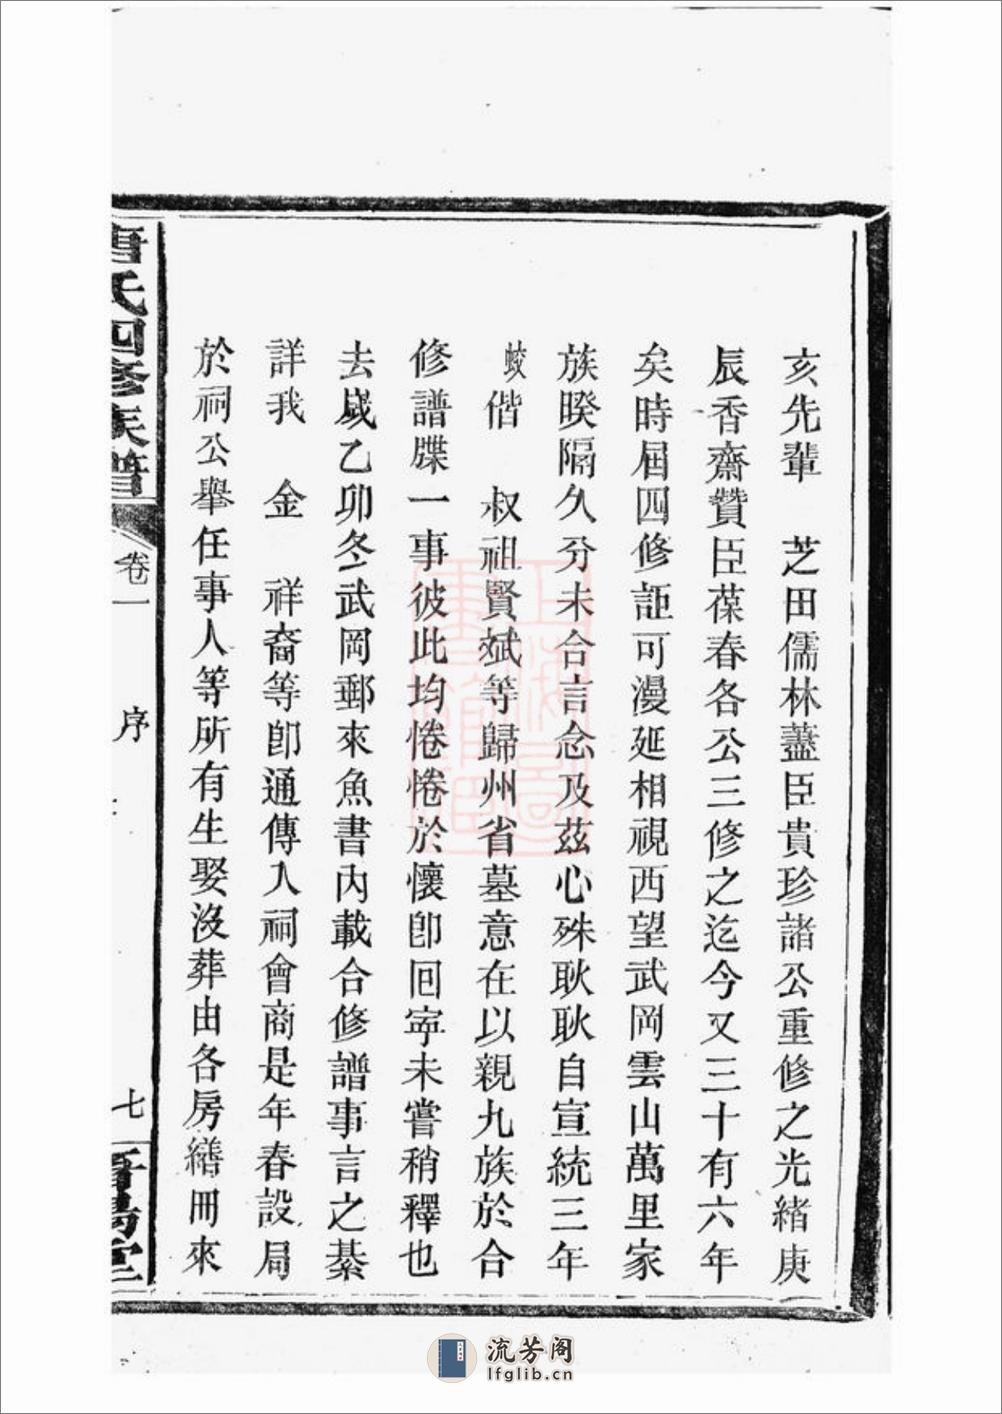 亥先輩　芝田儒林藎臣貴珍諸公重修之光緒庚
辰香齋贊臣葆春各公三修之迄今又三十有六年
矣時屆四修詎可漫延相視西望武岡雲山萬里家
族暌隔久分未合言念及茲心殊耿耿自宣統三年
蛟偕　叔祖賢斌等歸州省墓意在以親九族於合
修譜牒一事彼此均惓惓於懷卽回寧未嘗稍釋也
去歲乙卯冬武岡郵來魚書內載合修譜事言之綦
詳我　金　祥裔等卽通傳入祠會商是年春設局
於祠公舉任事人等所有生娶沒葬由各房繕冊來
唐氏四修族譜
卷一
序
七
晉陽堂
上海圖書館藏
流芳阁
lfglib.cn